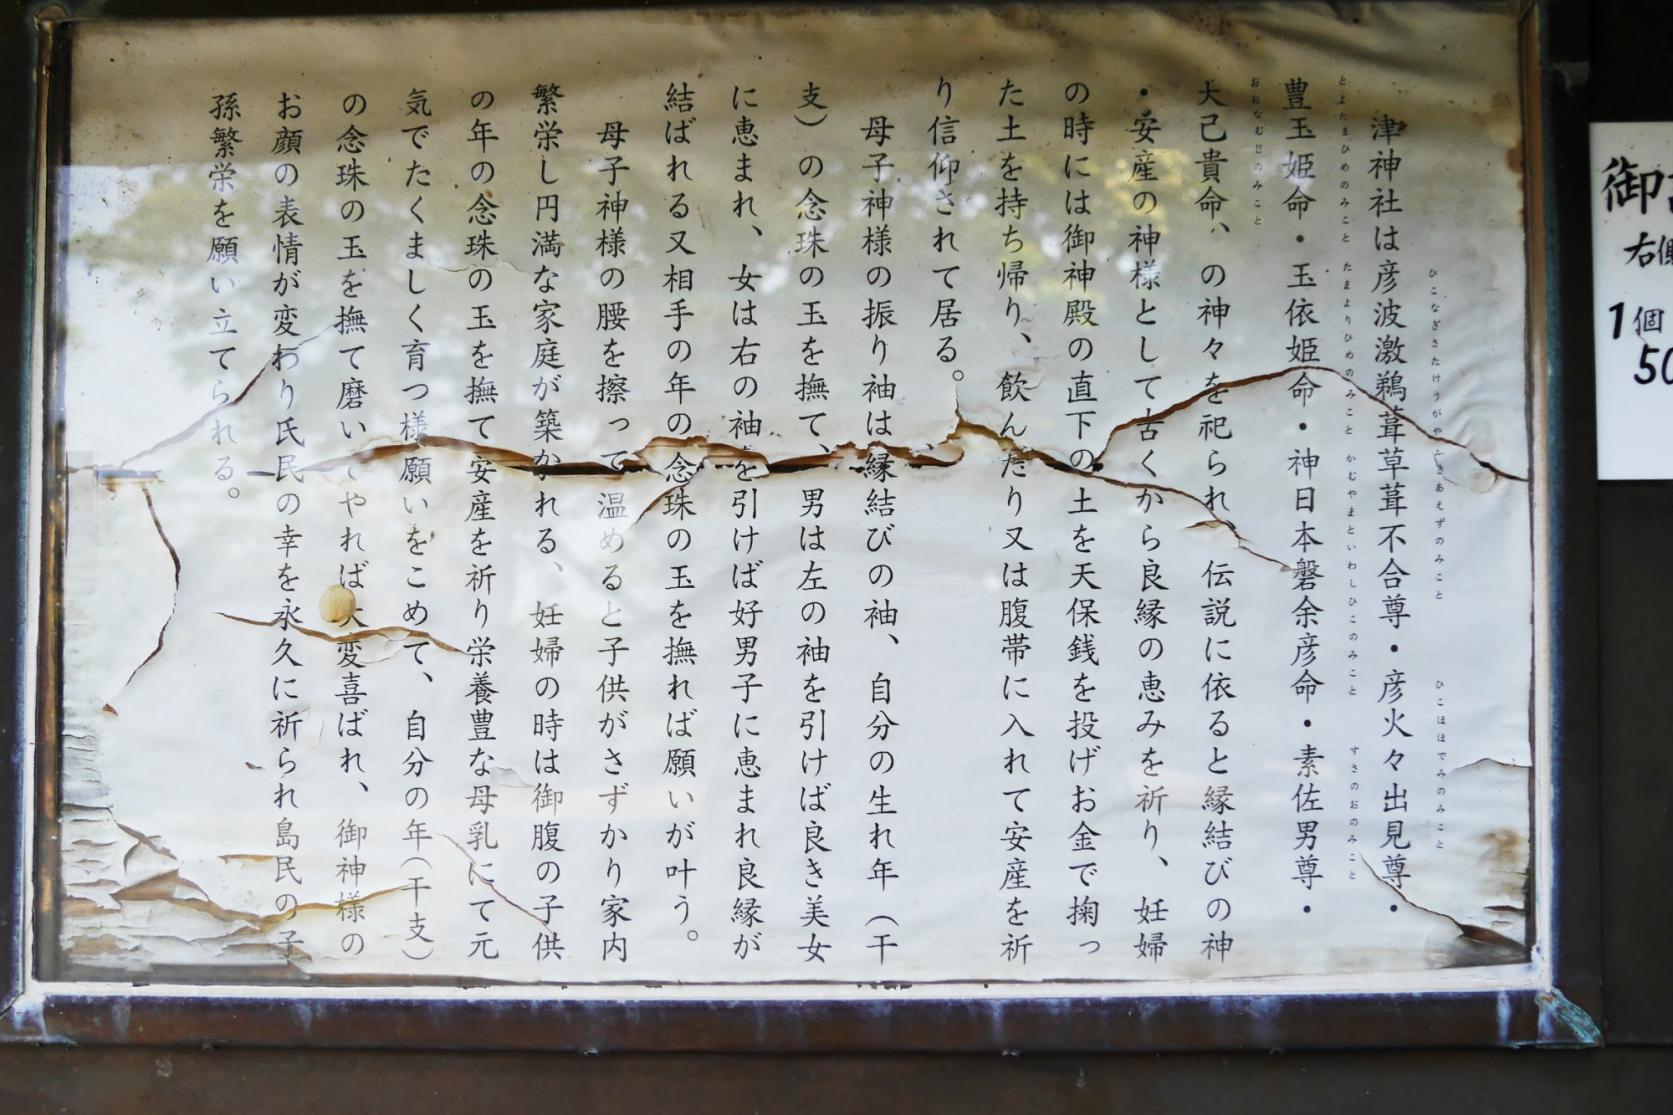 津神社は彦波激鵜葺草葺不合尊・彦火々出見尊・
ひこなぎさたけうがやふきあえずのみこと　ひこほほでみのみこと
豊玉姫命・玉依姫命・神日本磐余彦命・素佐男尊・
とよたまひめのみこと　たまよりひめのみこと　かむやまといわしひこのみこと　すさのおのみこと
大己貴命、の神々を祀られ、伝説に依ると縁結びの神
おおなむじのみこと
・安産の神様として古くから良縁の恵みを祈り、妊婦
の時には御神殿の直下の土を天保銭を投げお金で掬っ
た土を持ち帰り、飲んだり又は腹帯に入れて安産を祈
り信仰されて居る。
母子神様の振り袖は縁結びの袖、自分の生れ年（干
支）の念珠の玉を撫て、男は左の袖を引けば良き美女
に恵まれ、女は右の袖を引けば好男子に恵まれ良縁が
結ばれる又相手の年の念珠の玉を撫れば願いが叶う。
母子神様の腰を擦って温めると子供がさずかり家内
繁栄し円満な家庭が築かれる、妊婦の時は御腹の子供
の年の念珠の玉を撫て安産を祈り栄養豊な母乳にて元
気でたくましく育つ様願いをこめて、自分の年（干支）
の念珠の玉を撫て磨いてやれば大変喜ばれ、御神様の
お顔の表情が変わり氏民の幸を永久に祈られ島民の子
孫繁栄を願い立てられる。
御
右側
1個
50